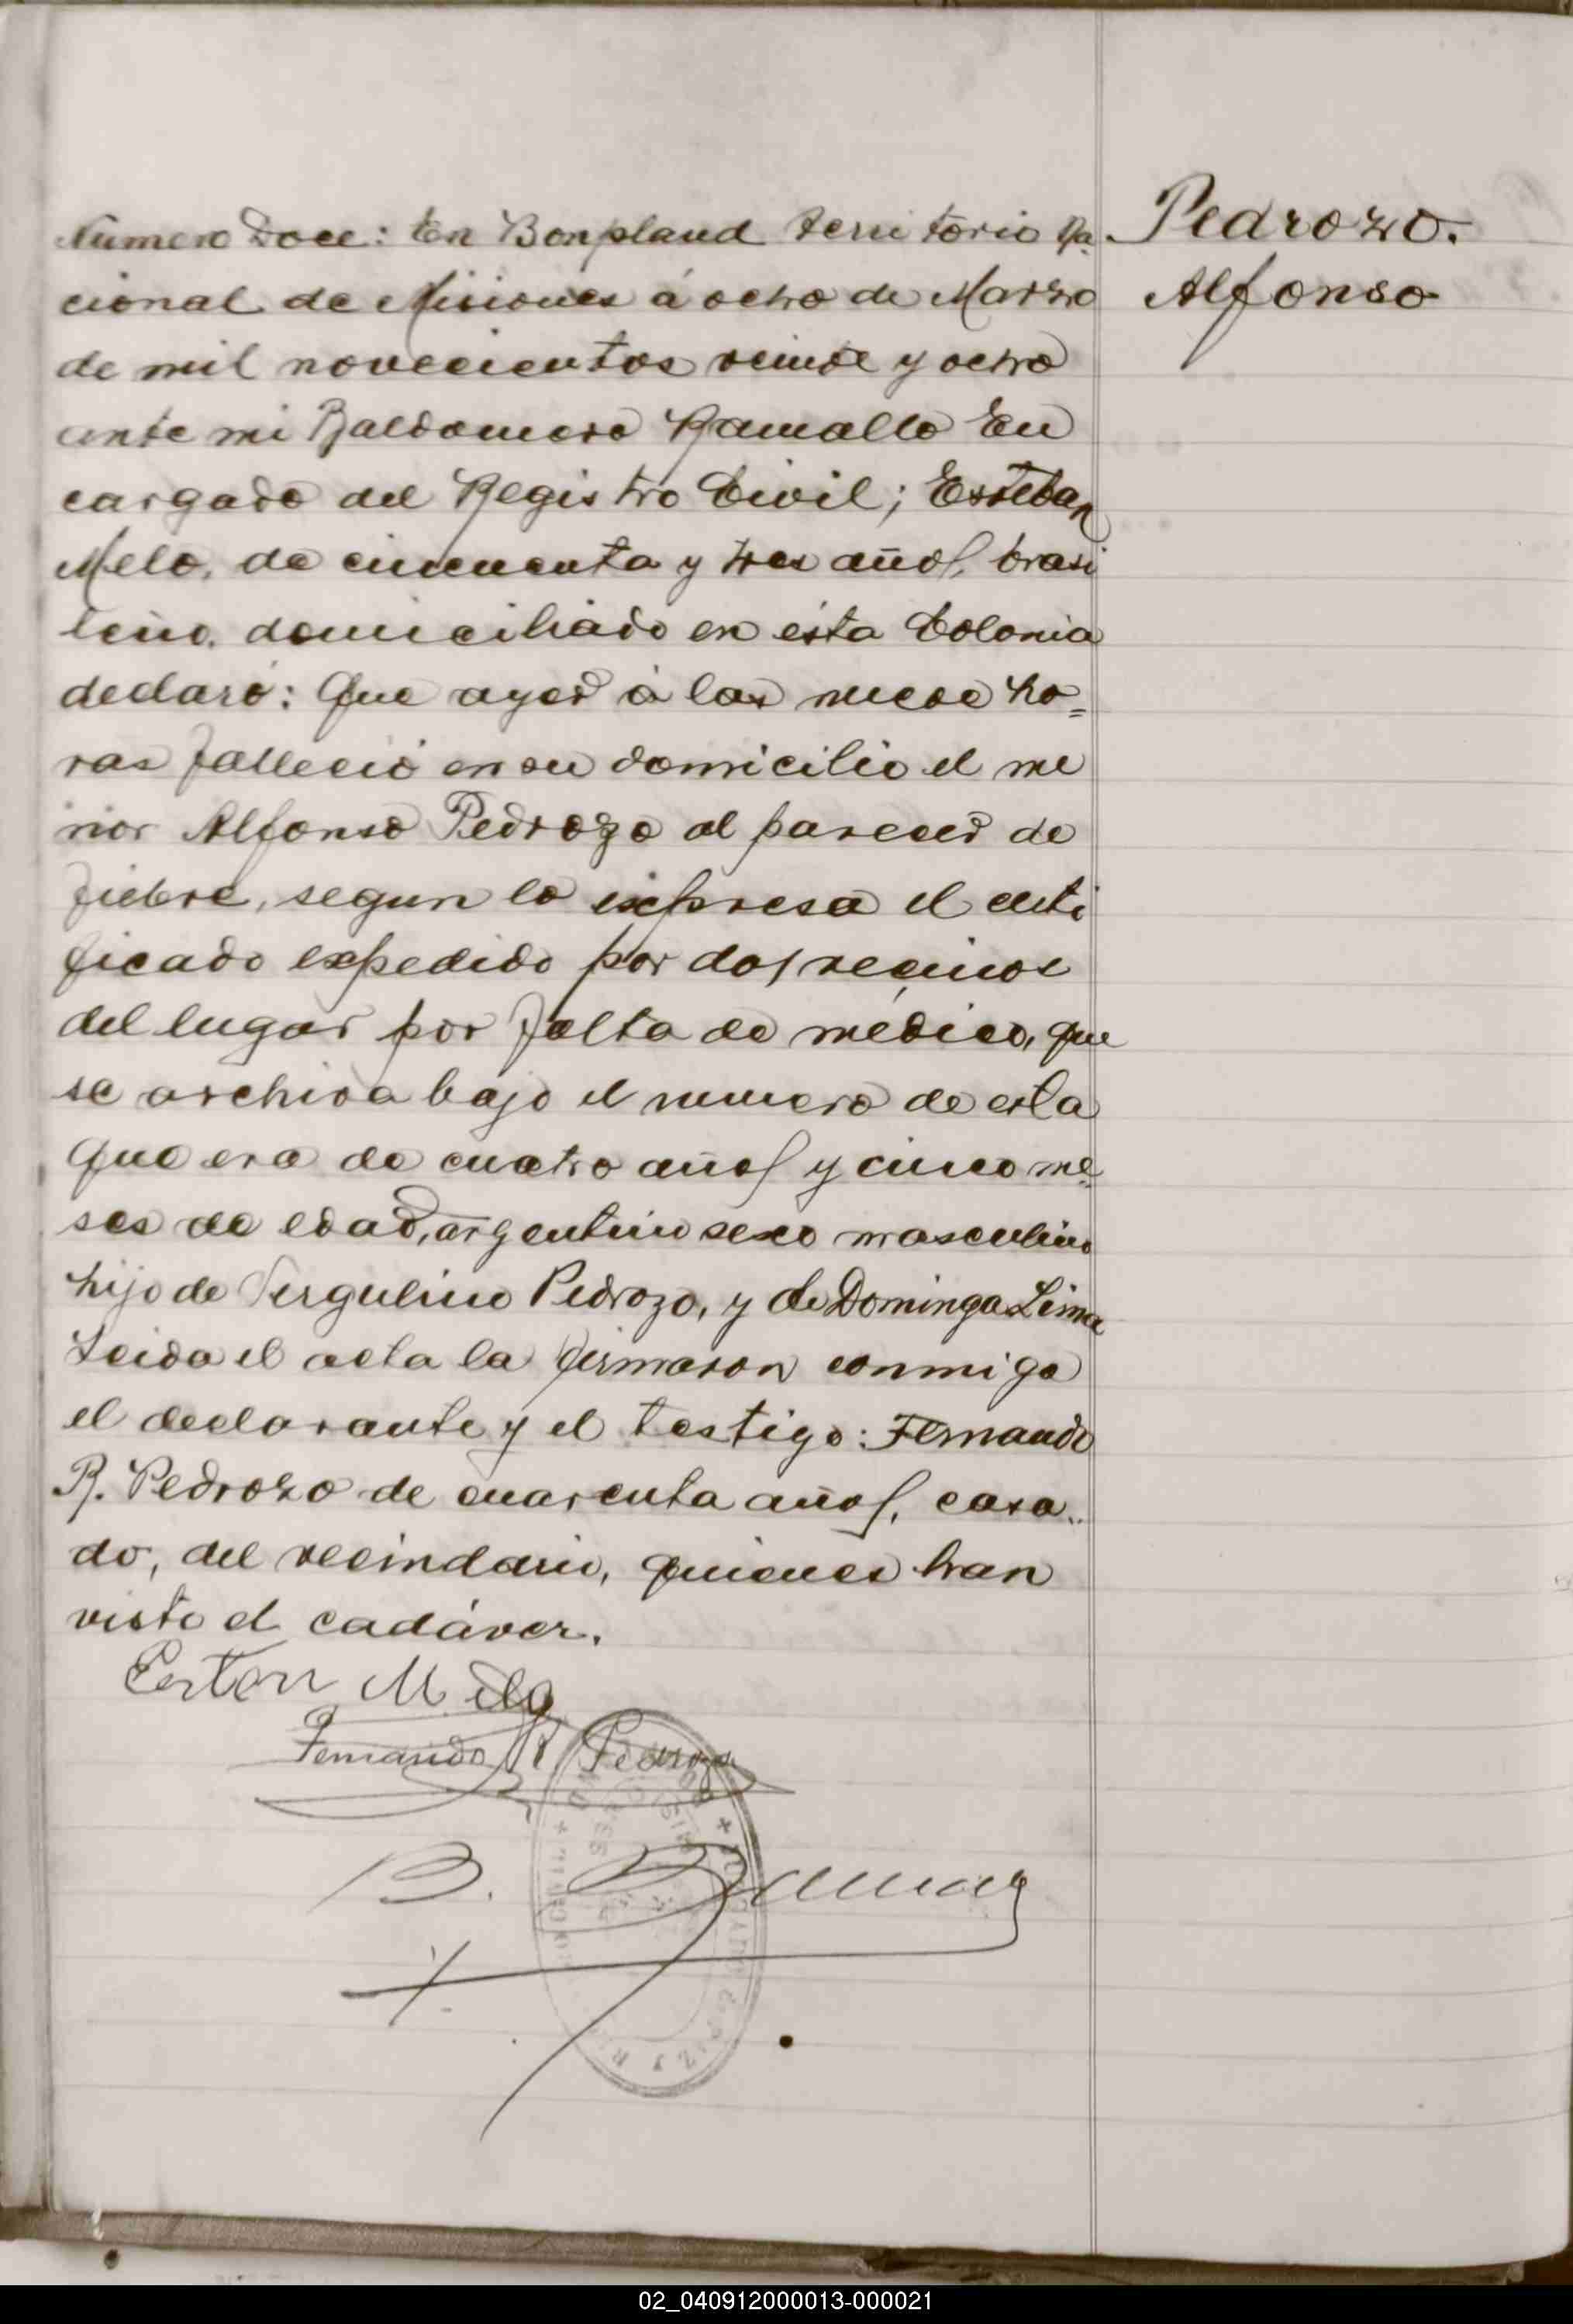 Pedrozo.
Alfonso
Número Doce: En Bonpland Territorio Na.
cional de Misiones á ocho de Marzo
de mil novecientos veinte y ocho
ante mi Baldomero Ramallo En
cargado del Registro Civil; Esteban
Melo, de cincuenta y tres años, brasi
leño, domiciliado en ésta Colonia
declaró: Que ayer á las nueve ho=
ras falleció en su domicilio el me
nor Alfonso Pedrozo al parecer de
fiebre, segun lo expresa el certi
ficado expedido por dos vecinos
del lugar por falta de médico, que
se archiva bajo el numero de esta
que era de cuatro años y cinco me
ses de edad, argentino sexo masculino
hijo de Vergulino Pedrozo, y de Dominga Lima
Leida el acta la firmaron conmigo
el declarante y el testigo: Fernando
R. Pedrozo de cuarenta años, casa..
do, del vecindario, quienes han
visto el cadáver.
Melo
Fernando R Pedrozo
B.
02_040912000013-000021